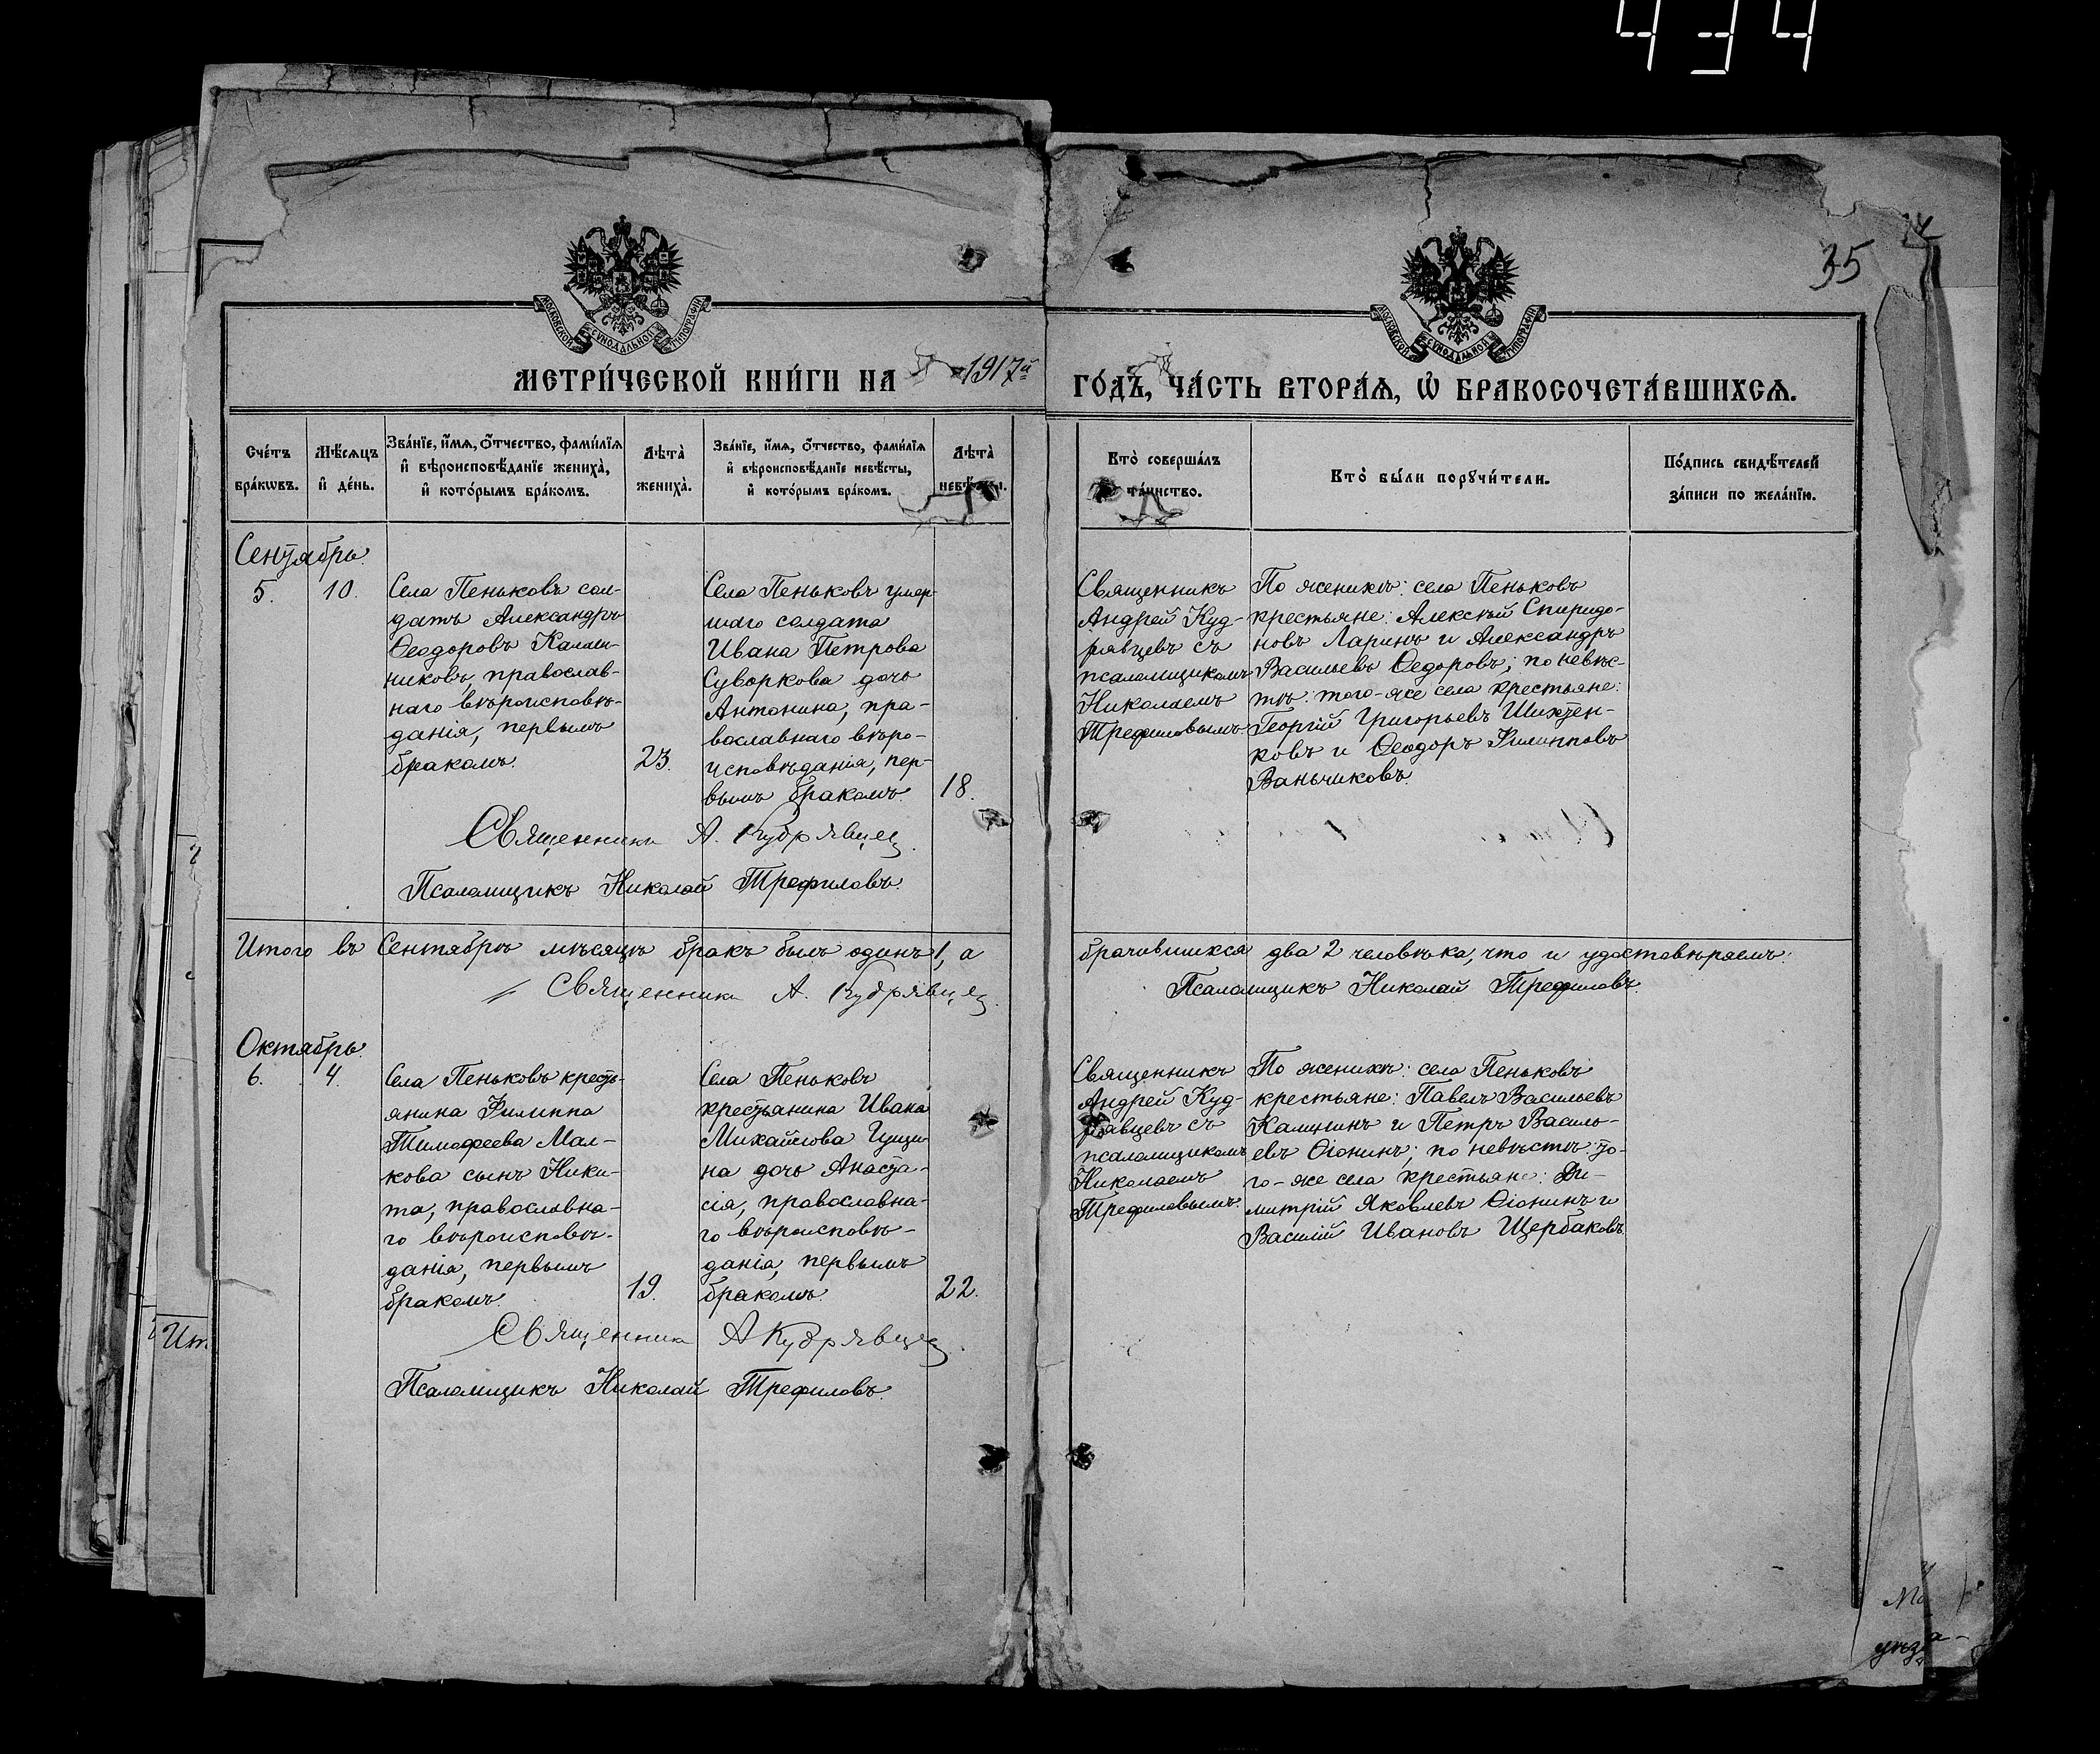 434
35
МОСКОВСКОЙ СѴНОДАЛЬНОЙ ТИПОГРАФІИ
МОСКОВСКОЙ СѴНОДАЛЬНОЙ ТИПОГРАФІИ
МЕТРИ́ЧЕСКОЙ КНИ́ГИ НА 1917й ГО́ДЪ, ЧА́СТЬ ВТОРА́Ѧ, Ѡ҆ БРАКОСОЧЕТА́ВШИХСѦ.
Сче́тъ бра́кѡвъ.
Мѣ́сѧцъ и҆ де́нь.
Зва́нїе, и҆́мѧ, ѻ҆́тчество, фами́лїѧ
и҆ вѣроисповѣ́данїе жениха̀,
и҆ кото́рымъ бра́комъ.
Лѣта̀ жениха̀.
Зва́нїе, и҆́мѧ, ѻ҆́тчество, фами́лїѧ
и҆ вѣроисповѣ́данїе невѣ́сты,
и҆ кото́рымъ бра́комъ.
Лѣта̀ невѣ́сты.
Кто̀ соверша́лъ
та́инство.
Кто̀ бы́ли порꙋчи́тели.
По́дпись свидѣ́телей
за́писи по жела́нїю.
Сентябрь.
5.
10.
Села Пеньковъ сол-
датъ Александръ
Ѳеодоровъ Калаш-
никовъ, православ-
наго вѣроисповѣ-
данія, первымъ
бракомъ.
23.
Села Пеньковъ умер-
шаго солдата
Ивана Петрова
Суворкова дочь
Антонина, пра-
вославнаго вѣро-
исповѣданія, пер-
вымъ бракомъ.
18.
Священникъ
Андрей Куд-
рявцевъ съ
псаломщикомъ
Николаемъ
Трефиловымъ
По женихѣ: села Пеньковъ
крестьяне: Алексѣй Спиридо-
новъ Ларинъ и Александръ
Васильевъ Ѳедоровъ; по невѣс-
тѣ: того-же села крестьяне:
Георгій Григорьевъ Шихтен-
ковъ и Ѳеодоръ Филипповъ
Ваньчиковъ.
Священникъ А. Кудрявцев
Псаломщикъ Николай Трефиловъ.
Итого въ Сентябрѣ мѣсяцѣ бракъ былъ одинъ 1, а брачившихся два 2 человѣка, что и удостовѣряемъ:
Священникъ А. Кудрявцев
Псаломщикъ Николай Трефиловъ.
Октябрь.
6.
4.
Села Пеньковъ кресть-
янина Филиппа
Тимофеева Мал-
кова сынъ Ники-
та, православна-
го вѣроисповѣ-
данія, первымъ
бракомъ.
19.
Села Пеньковъ
крестьянина Ивана
Михайлова Гущи-
на дочь Анаста-
сія, православна-
го вѣроисповѣ-
данія, первымъ
бракомъ.
22.
Священникъ
Андрей Куд-
рявцевъ съ
псаломщикомъ
Николаемъ
Трефиловымъ.
По женихѣ: села Пеньковъ
крестьяне: Павелъ Васильевъ
Калининъ и Петръ Василь-
евъ Ѳіонинъ; по невѣстѣ: то-
го-же села крестьяне: Ди-
митрій Яковлевъ Ѳіонинъ и
Василій Ивановъ Щербаковъ.
Священникъ А Кудрявцев
Псаломщикъ Николай Трефиловъ.